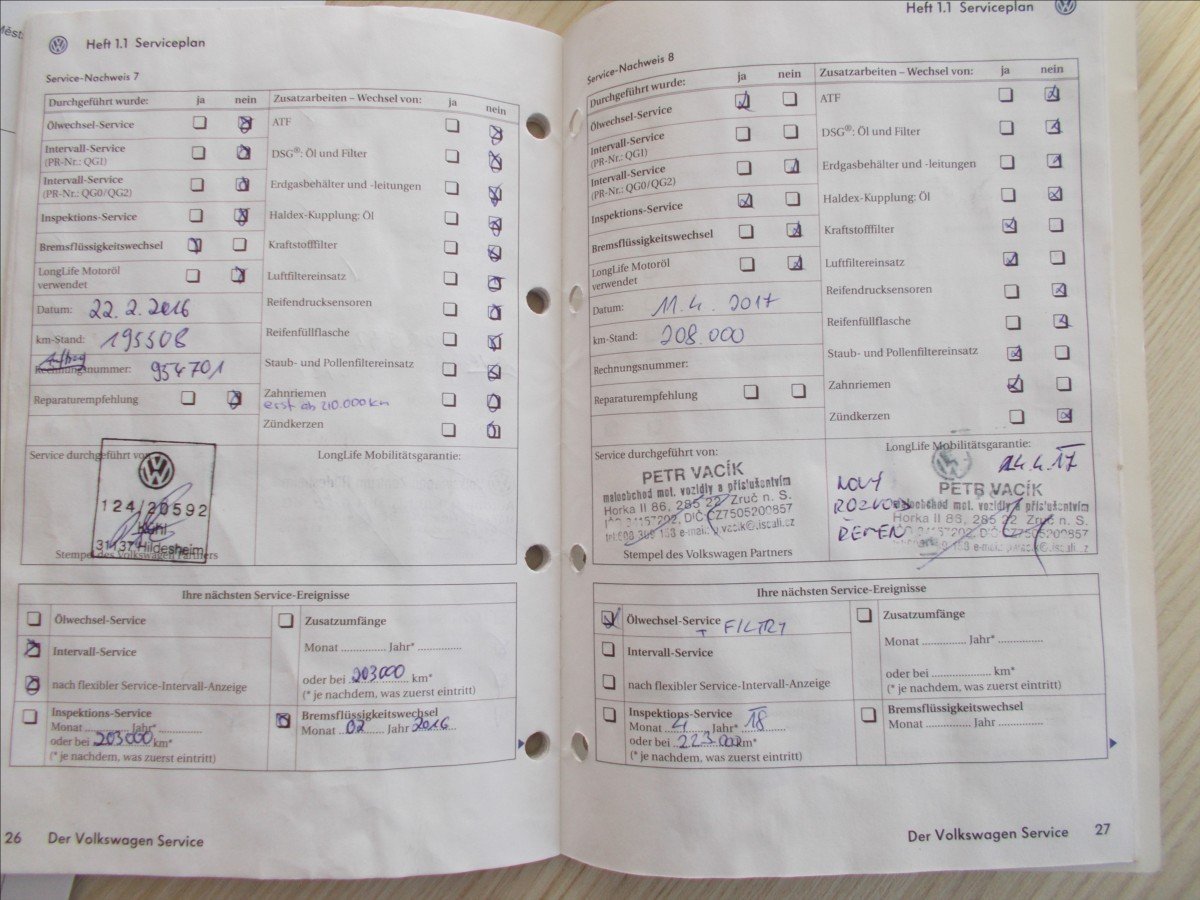 Heft 1.1 Serviceplan
Service-Nachweis 7
Durchgeführt wurde: ja nein
Ölwechsel-Service
Intervall-Service
(PR-Nr.: QG1)
Intervall-Service
(PR-Nr.: QG0/QG2)
Inspektions-Service
Bremsflüssigkeitswechsel
LongLife Motoröl
verwendet
Datum: 22.2.2016
km-Stand: 195508
Auftrag
Rechnungsnummer: 954701
Reparaturempfehlung
Zusatzarbeiten – Wechsel von: ja nein
ATF
DSG®: Öl und Filter
Erdgasbehälter und -leitungen
Haldex-Kupplung: Öl
Kraftstofffilter
Luftfiltereinsatz
Reifendrucksensoren
Reifenfüllflasche
Staub- und Pollenfiltereinsatz
Zahnriemen
erst ab 210.000 km
Zündkerzen
Service durchgeführt von:
124/20592
Kühl
31137 Hildesheim
Stempel des Volkswagen Partners
LongLife Mobilitätsgarantie:
Ihre nächsten Service-Ereignisse
Ölwechsel-Service
Intervall-Service
nach flexibler Service-Intervall-Anzeige
Inspektions-Service
Monat ............ Jahr* ............
oder bei 203000 km*
(* je nachdem, was zuerst eintritt)
Zusatzumfänge
Monat ............ Jahr* ............
oder bei 203000 km*
(* je nachdem, was zuerst eintritt)
Bremsflüssigkeitswechsel
Monat 02 Jahr 2016
26 Der Volkswagen Service
Heft 1.1 Serviceplan
Service-Nachweis 8
Durchgeführt wurde: ja nein
Ölwechsel-Service
Intervall-Service
(PR-Nr.: QG1)
Intervall-Service
(PR-Nr.: QG0/QG2)
Inspektions-Service
Bremsflüssigkeitswechsel
LongLife Motoröl
verwendet
Datum: 11.4.2017
km-Stand: 208.000
Rechnungsnummer:
Reparaturempfehlung
Zusatzarbeiten – Wechsel von: ja nein
ATF
DSG®: Öl und Filter
Erdgasbehälter und -leitungen
Haldex-Kupplung: Öl
Kraftstofffilter
Luftfiltereinsatz
Reifendrucksensoren
Reifenfüllflasche
Staub- und Pollenfiltereinsatz
Zahnriemen
Zündkerzen
Service durchgeführt von:
PETR VACÍK
maloobchod mot. vozidly a příslušentvím
Horka II 86, 285 22 Zruč n. S.
DIČ CZ7505200857
Stempel des Volkswagen Partners
LongLife Mobilitätsgarantie:
NOVÝ
ROZVOD
ŘEMEN
PETR VACÍK
maloobchod mot. vozidly a příslušentvím
Horka II 86, 285 22 Zruč n. S.
DIČ CZ7505200857
Ihre nächsten Service-Ereignisse
Ölwechsel-Service
+ FILTRY
Intervall-Service
nach flexibler Service-Intervall-Anzeige
Inspektions-Service
Monat 4 Jahr* 18
oder bei 223.000 km*
(* je nachdem, was zuerst eintritt)
Zusatzumfänge
Monat ............ Jahr* ............
oder bei ............ km*
(* je nachdem, was zuerst eintritt)
Bremsflüssigkeitswechsel
Monat ............ Jahr ............
Der Volkswagen Service 27